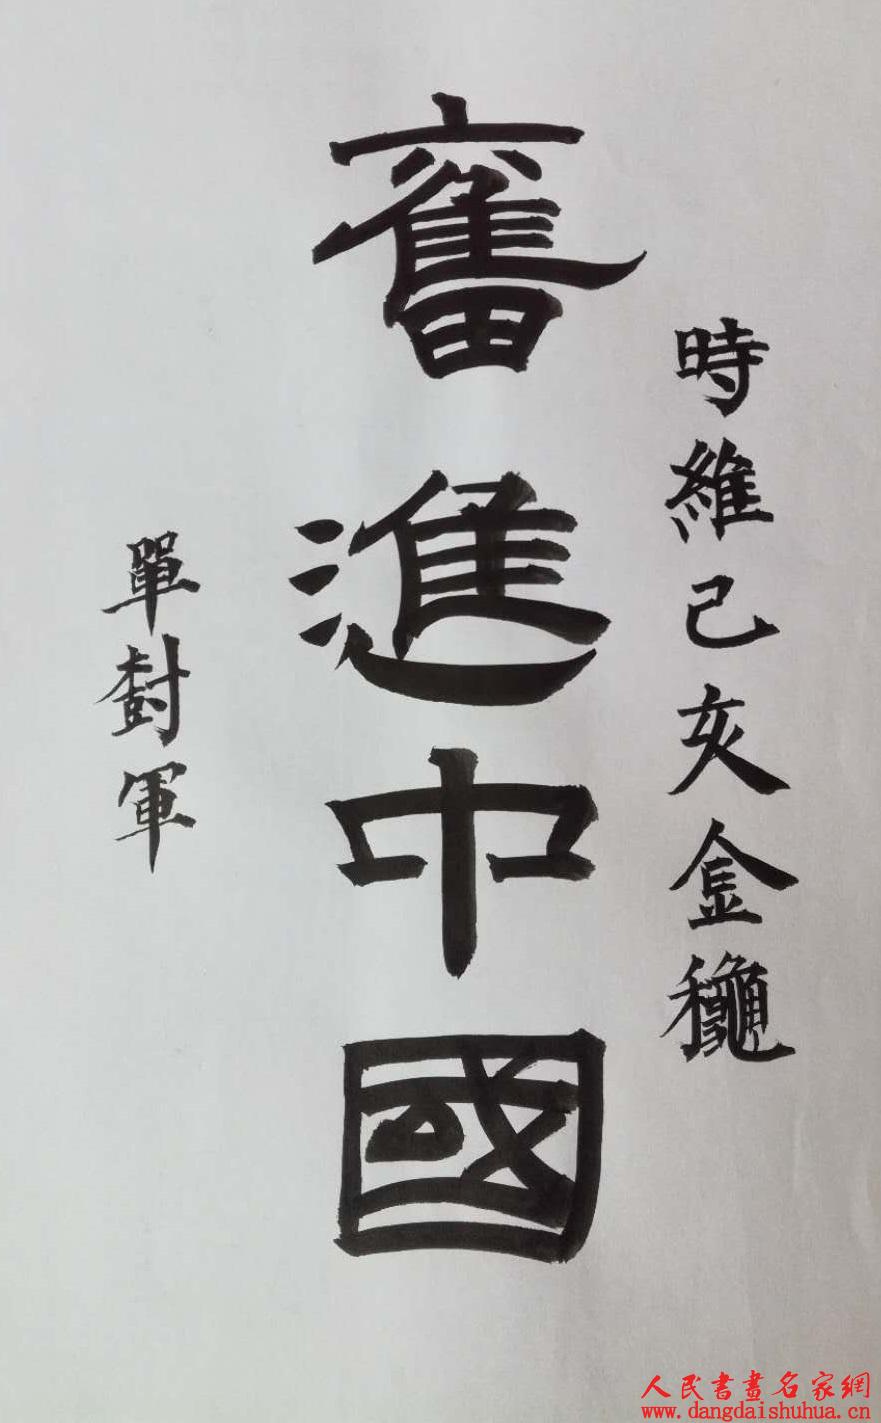 時維己亥金龝
奮進中國
單樹軍
人民書畫名家網
www.dangdaishuhua.cn